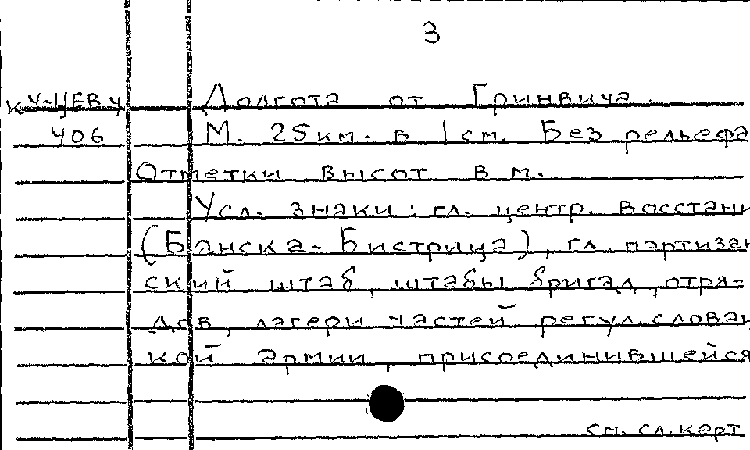 3
Долгота от Гринвича.
406 М. 25 км. в 1 см. Без рельефа
Отметки высот в м.
Усл. знаки: гл. центр. восстани
(Банска-Бистрица), гл. партизан
ский штаб, штабы бригад, отря-
дов, лагери частей регул. словац
кой армии, присоединившейся
см. сл. карт